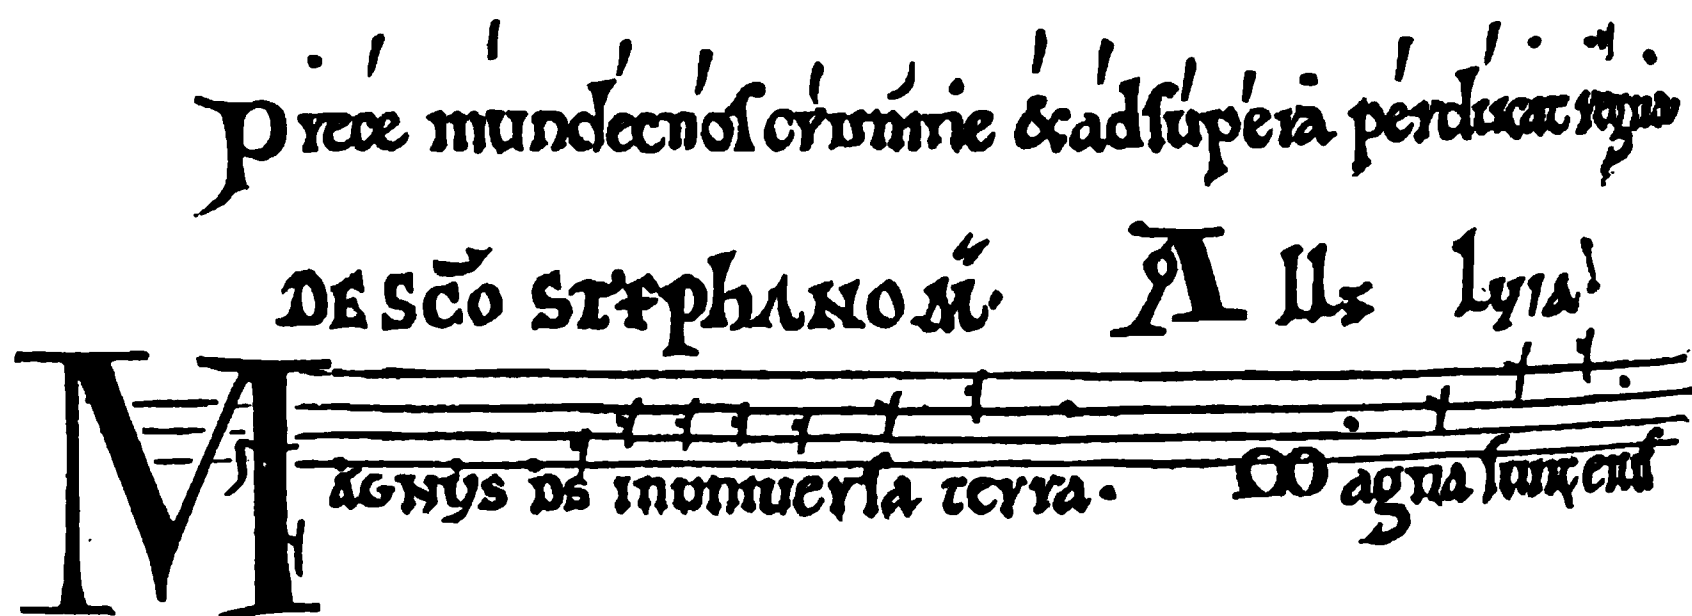 Prece mundet nos crimine & ad supera perducat regna
DE SCO STEPHANO M. Alle luia
MAGNUS DS in uniuersa terra. Magna sunt